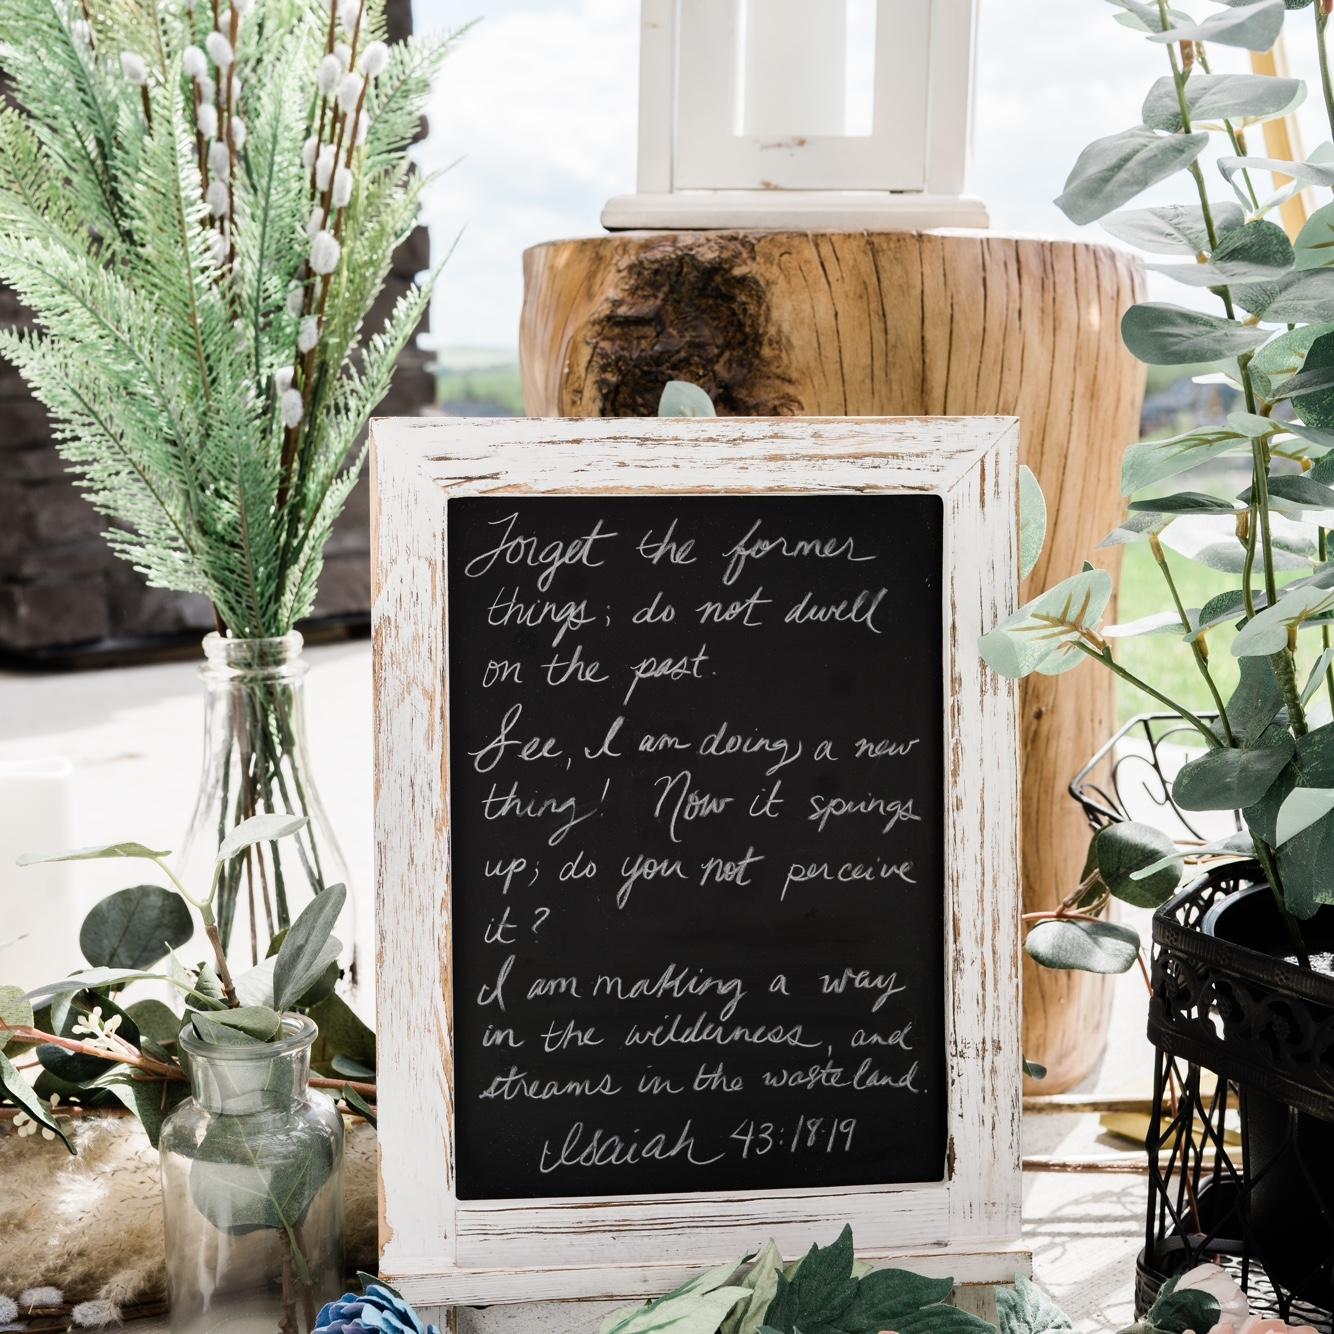 Forget the former
things; do not dwell
on the past.
See, I am doing a new
thing! Now it springs
up; do you not perceive
it?
I am making a way
in the wilderness, and
streams in the wasteland.
Isaiah 43:18-19